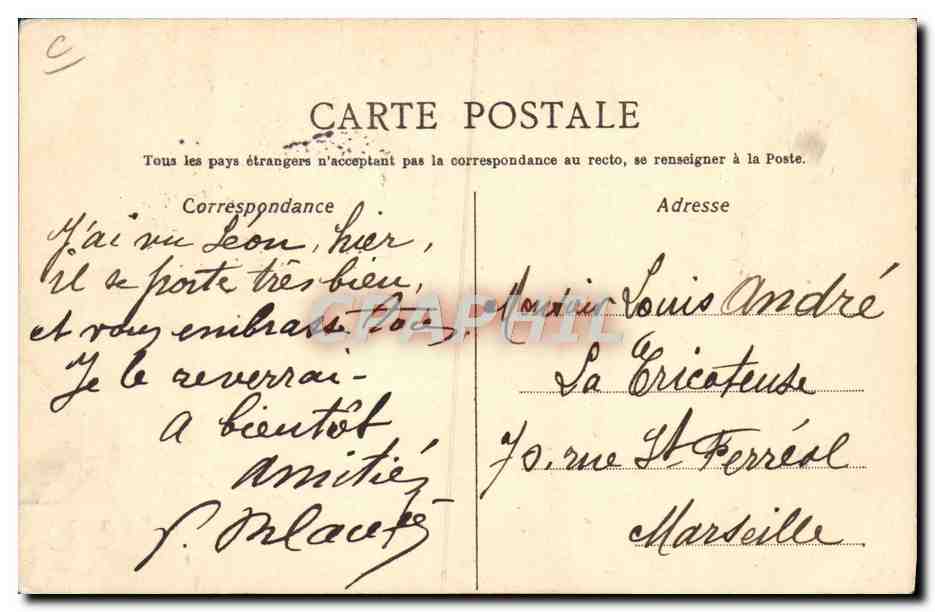 C
CARTE POSTALE
Tous les pays étrangers n'acceptant pas la correspondance au recto, se renseigner à la Poste.
Correspondance
J'ai vu Léon, hier,
il se porte très bien,
et vous embrasse tous,
Je le reverrai -
A bientôt
Amitiés
Adresse
Monsieur Louis André
La Tricoteuse
70. rue St Ferréol
Marseille
CPAPHIL